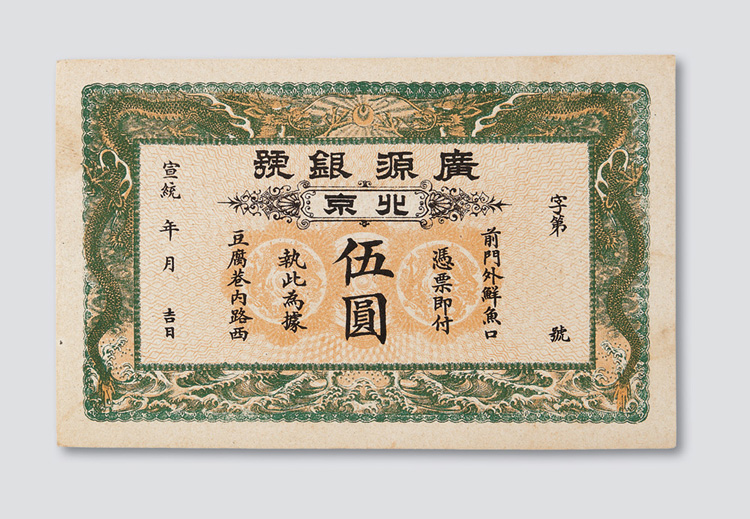 廣源銀號
北京
字第 號
前門外鮮魚口
憑票即付
伍圓
執此為據
豆腐巷內路西
宣統 年 月 吉日